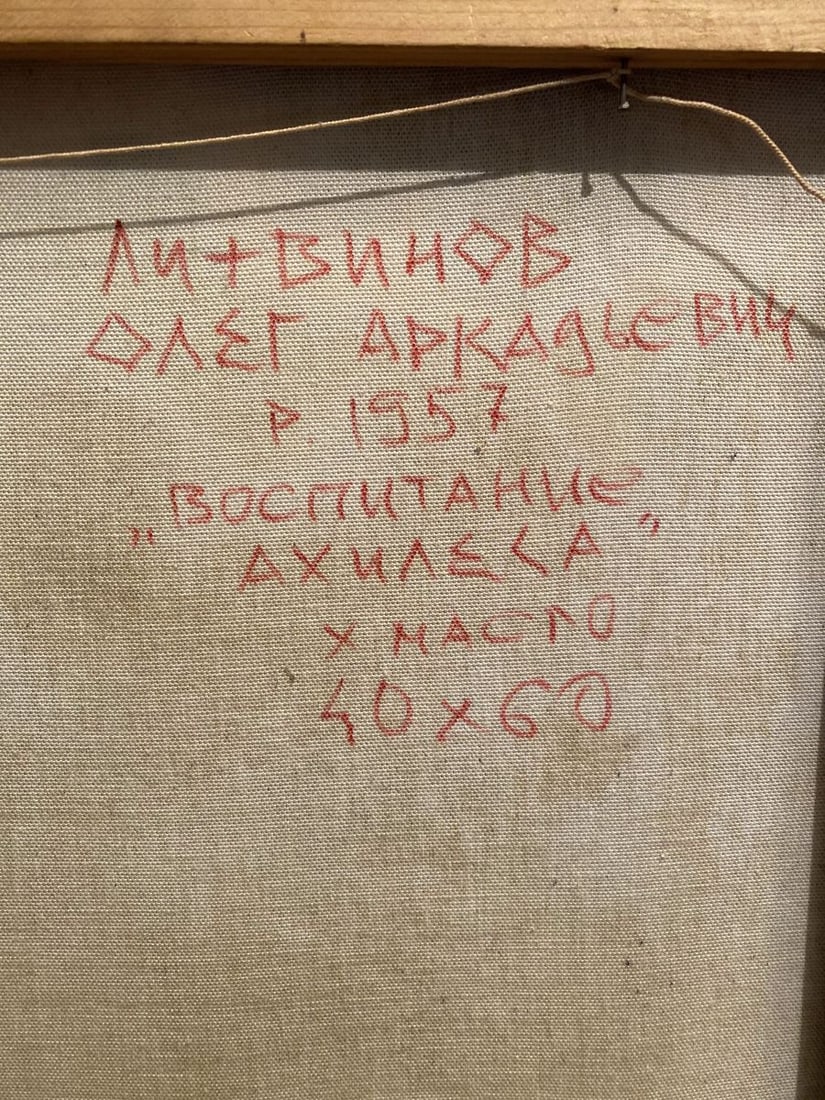 ЛИТВИНОВ
ОЛЕГ АРКАДЬЕВИЧ
Р. 1957
„ВОСПИТАНИЕ
АХИЛЕСА„
Х МАСЛО
40х60